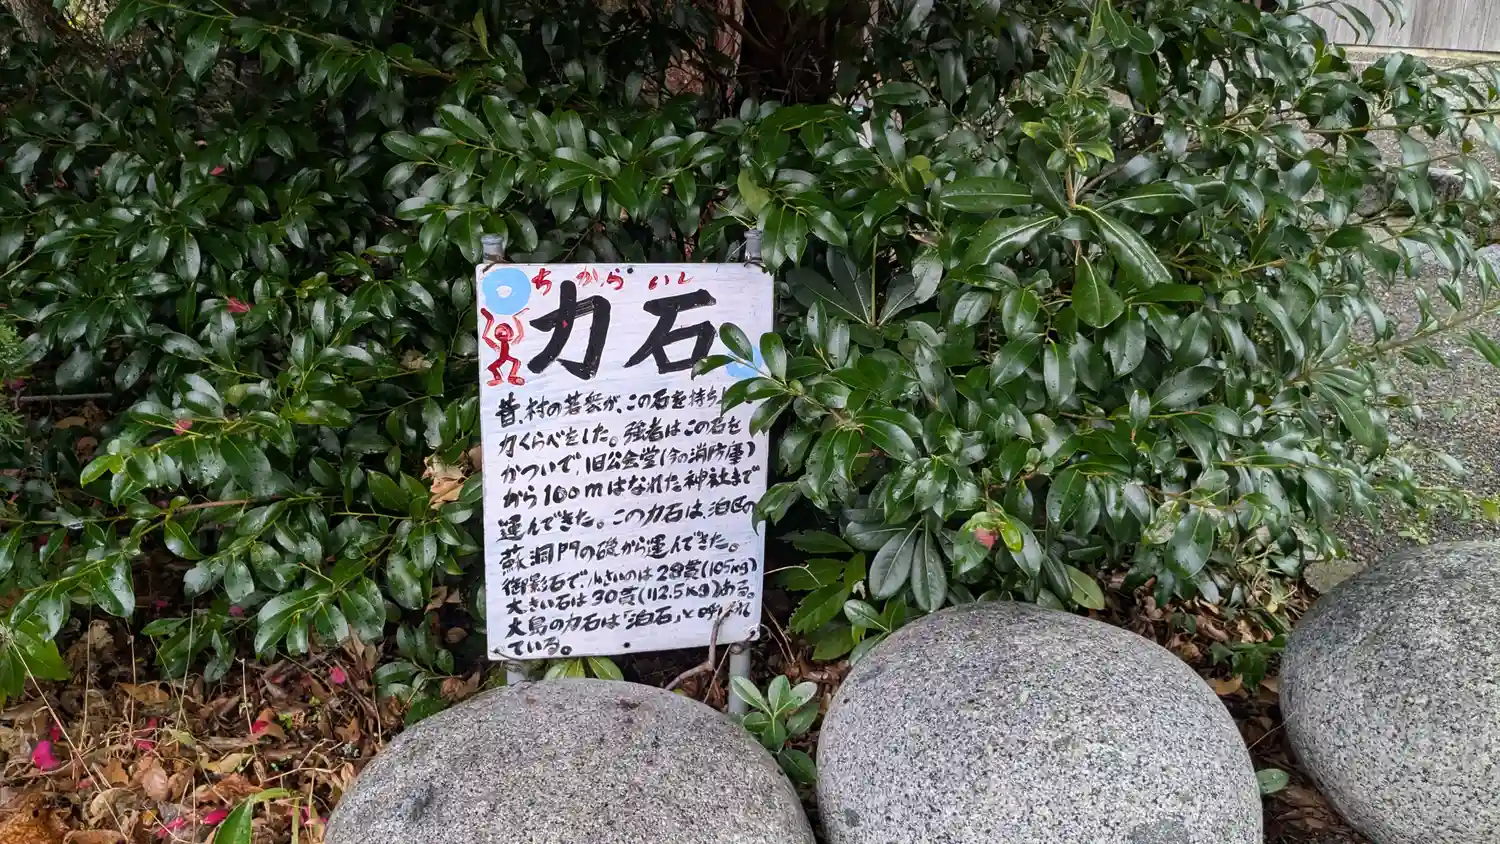 ちからいし
力石
昔、村の若衆が、この石を持ち上
力くらべをした。強者はこの石を
かついで、旧公会堂(今の消防庫)
から100mはなれた神社まで
運んできた。この力石は、泊区の
蘇洞門の磯から運んできた。
御影石で小さいのは28貫(105kg)
大きい石は30貫(112.5kg)ある。
大島の力石は「泊石」と呼ばれ
ている。